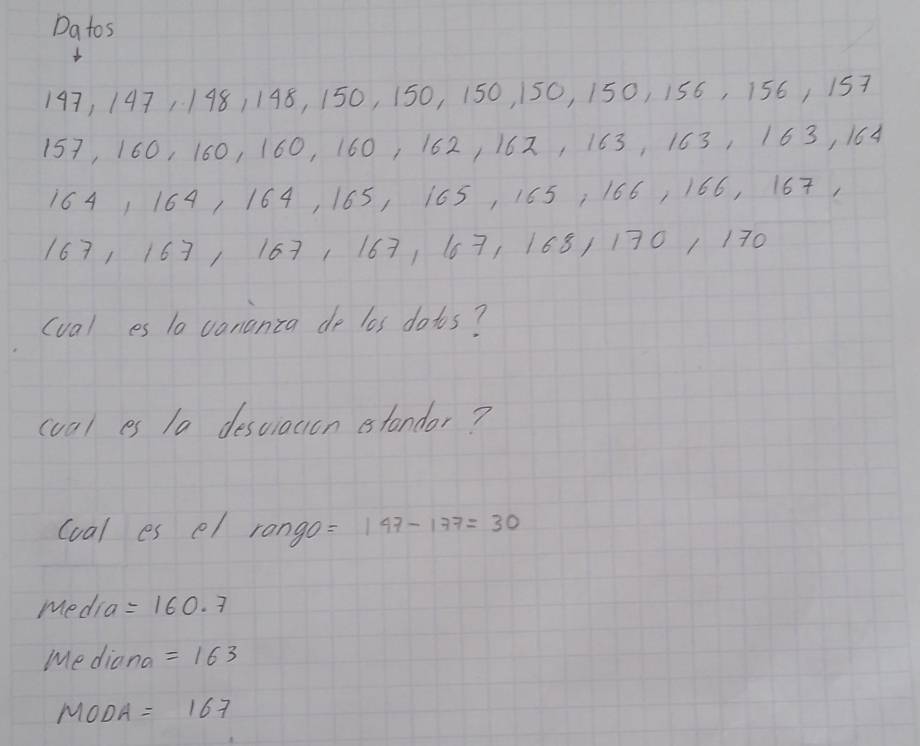 Datos
147, 147, 148, 148, 150, 150, 150, 150, 150, 156, 156, 157
157, 160, 160, 160, 160, 162, 162, 163, 163, 163, 164
164, 164, 164, 165, 165, 165, 166, 166, 167,
167, 167, 167, 167, 167, 168, 170, 170
Cual es la varianza de los datos?
cual es la desviacion estandar?
Cual es el rango= 147-177=30
Media= 160.7
Mediana = 163
MODA= 167